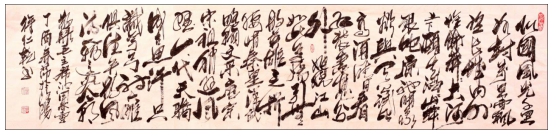 北国风光千里
冰封万里雪飘
望长城内外
惟余莽莽大河
上下顿失滔滔山舞
银蛇原驰蜡象
欲与天公试比
高须晴日看
红装素裹分外
妖娆江山
如此多娇引无数
英雄竞折腰
惜秦皇汉武
略输文采唐宗
宋祖稍逊风
骚一代天骄
成吉思汗只识
弯弓射大雕
俱往矣数风
流人物还看今朝
丁酉春